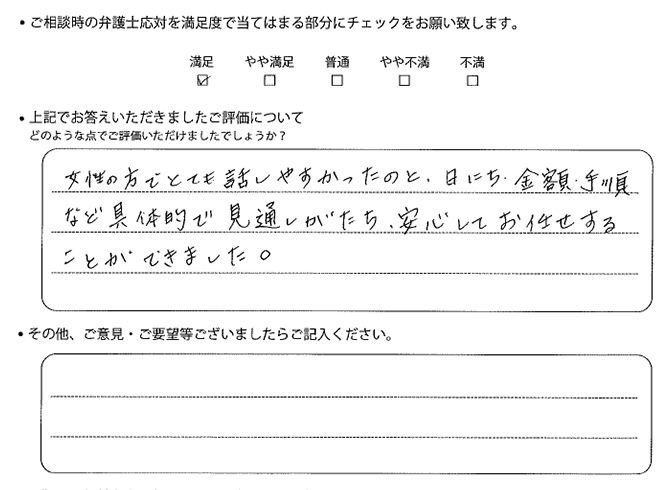 • ご相談時の弁護士応対を満足度で当てはまる部分にチェックをお願い致します。
満足 やや満足 普通 やや不満 不満
☑ ☐ ☐ ☐ ☐
• 上記でお答えいただきましたご評価について
どのような点でご評価いただけましたでしょうか？
女性の方でとても話しやすかったのと、日にち・金額・手順
など具体的で見通しがたち、安心してお任せする
ことができました。
• その他、ご意見・ご要望等ございましたらご記入ください。